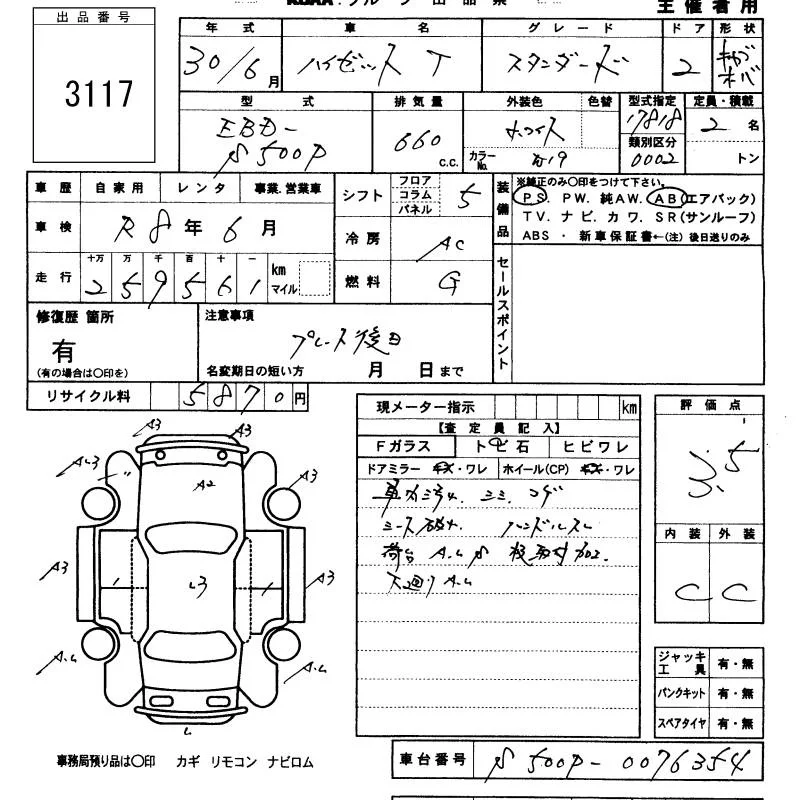 主催者用
出品番号
3117
年式 車名 グレード ドア 形状
30/6月 ハイゼットT スタンダード 2
型式 排気量 外装色 色替 型式指定 定員・積載
EBD-
S500P 660 C.C. ホワイト カラーNo. W19 17818 2名
類別区分
0002 トン
車歴 自家用 レンタ 事業.営業車
シフト フロア コラム パネル 5
装備品
※純正のみ〇印をつけて下さい。
PS. PW. 純AW. AB(エアバック)
TV. ナビ. カワ. SR(サンルーフ)
ABS ・ 新車保証書←(注) 後日送りのみ
車検 R8年6月
冷房 AC
走行 十万 万 千 百 十 一 km マイル
259561
燃料 G
セールスポイント
修復歴 箇所
有
(有の場合は〇印を)
注意事項
プレート後日
名変期日の短い方 月 日まで
リサイクル料 5870円
現メーター指示 km
【査定員記入】
Fガラス トビ石 ヒビワレ
ドアミラー キズ・ワレ ホイール(CP) キズ・ワレ
車内汚れ. シミ. コゲ
シート破れ ハンドルスレ
荷台 A.L.S
A.L
評価点
3.5
内装 外装
C C
A3 A3
AL3 A2 A3
A3 L3 A3
A.L A.L
L
ジャッキ工具 有・無
パンクキット 有・無
スペアタイヤ 有・無
事務局預り品は〇印 カギ リモコン ナビロム
車台番号 S500P-0076354